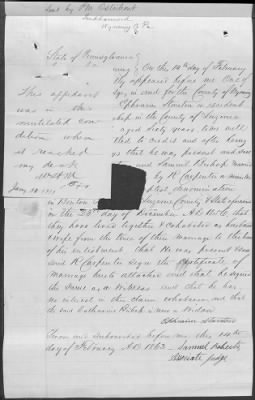 Sent by P.M. Osterhout
Tunkhannock
Wyoming Co Pa
State of Pennsylvania
ming ss On the 14th day of February
lly appeared before me One of
in and for the County of Wyoming
Ephraim Stanton a resident
ship in the County of Luzerne
aged sixty years who well
tled to credit and after being
ays that he was present and saw
and Samuel Bishop married
by R Carpenter a minister
ptist denomination
in Benton Luzerne County & State aforesaid
on the 23d day of December A.D.
they have lived together & Cohabited as husband
& wife from the time of their marriage to the time
of his enlistment that He was present & saw
R Carpenter sign the Certificate of
Marriage hereto attached and that he signed
the same as a Witness and that he has
no interest in this claim whatever and that
the said Catharine Bishop is now a Widow
Ephraim Stanton
Sworn and Subscribed before me this 14th
day of February A.D. 1863 Samuel Roberts
Associate Judge
This affidavit
was in this
mutilated con
dition when
it reached
my desk